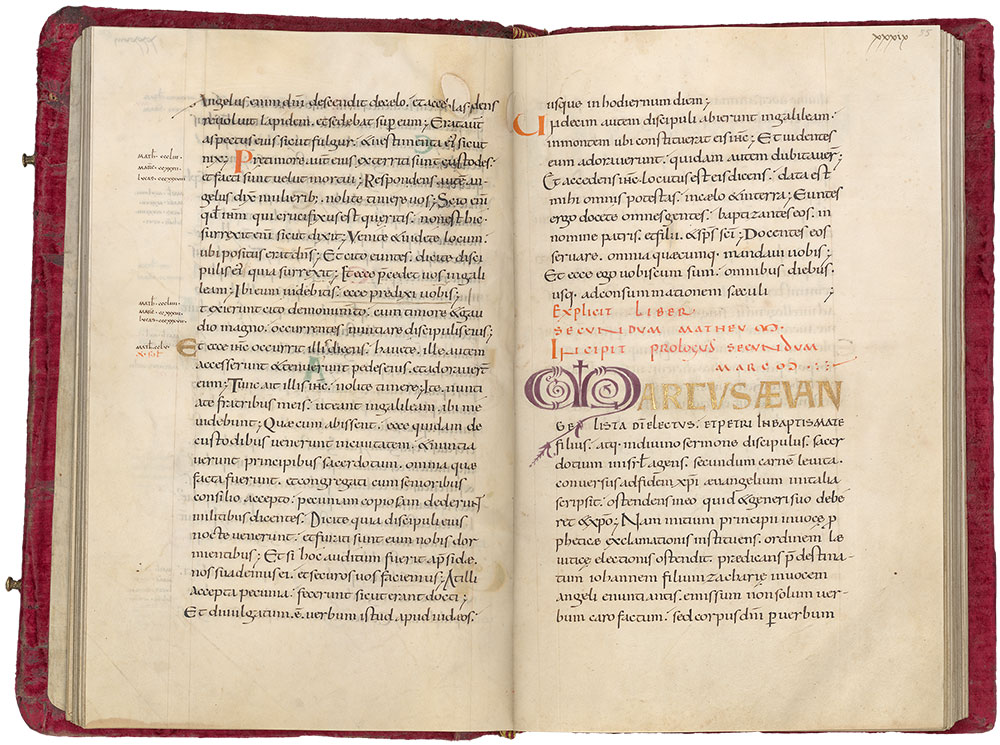 Angelus enim dni descendit decelo. et accedens
revoluit lapidem. et sedebat sup eum; Erat aut
aspectus eius sicut fulgur. & vestimenta ei' sicut
nix; Pretimore aut eius exterriti sunt custodes.
et facti sunt velut mortui; Respondens autem an
gelus dix mulierib;. nolite timere vos; Scio enim
qd ihm qui crucifixus est queritis. non est hic.
surrexit eni sicut dixit; Venite & videte locum.
ubi positus erat dns; Et cito euntes. dicite disci
pulis ei' quia surrexit; Et ecce p̄cedet vos ingali
leam; Ibi eum videbitis. ecce predixi vobis;
Et exierunt cito demonumto. cum timore & gau
dio magno. occurrentes nuntiare discipulis eius;
Et ecce ihc occurrit illis dicens. havete. ille autem
accesserunt & tenuerunt pedes eius. et adoraver
eum; Tunc ait illis ihc. nolite timere; Ite. nunti
ate fratribus meis. ut eant ingalileam. ibi me
videbunt; Quae cum abissent. ecce quidam de
custodibus venerunt incivitatem. & nuntia
verunt principibus sacerdotum. omnia quae
facta fuerant. et congregati cum senioribus
consilio accepto. pecuniam copiosam dederunt
militibus dicentes. Dicite quia discipuli eius
nocte venerunt. et furati sunt eum nobis dor
mientibus; Et si hoc auditum fuerit apside.
nos suademus ei. et securos vos faciemus; At illi
accepta pecunia. fecerunt sicut erant docti;
Et divulgatum. ē. verbum istud. apud iudaeos.
xxxix 55
usque in hodiernum diem;
Undecim autem discipuli abierunt ingalileam.
inmontem ubi constituerat eis ihc; Et videntes
eum adoraverunt. quidam autem dubitaver;
Et accedens ihc. locutus est eis dicens. data est
mihi omnis potestas. incaelo & interra; Euntes
ergo docete omnes gentes. baptizantes eos. in
nomine patris. et filii. & sps sci; Docentes eos
servare. omnia quaecumq. mandavi vobis;
Et ecce ego vobiscum sum. omnibus diebus.
usq. adconsummationem saeculi ;
Explicit liber
secundum matheum.
Incipit prologus secundum
marcum
MARCUS AEVAN
GELISTA DI ELECTUS. ET PETRI IN BAPTISMATE
filius. atq. indivino sermone discipulus. sacer
dotium inisrl agens. secundum carne levita.
conversus adfidem xpi aevangelium initalia
scripsit. ostendens ineo quid & generi suo debe
ret & xpo; Nam initium principii invoce p
pheticae exclamationis instituens. ordinem le
viticae electionis ostendit. praedicans p̄destina
tum iohannem filium zachariae invocem
angeli enuntiantis. emissum non solum ver
bum caro factum. sed corpus dni p verbum